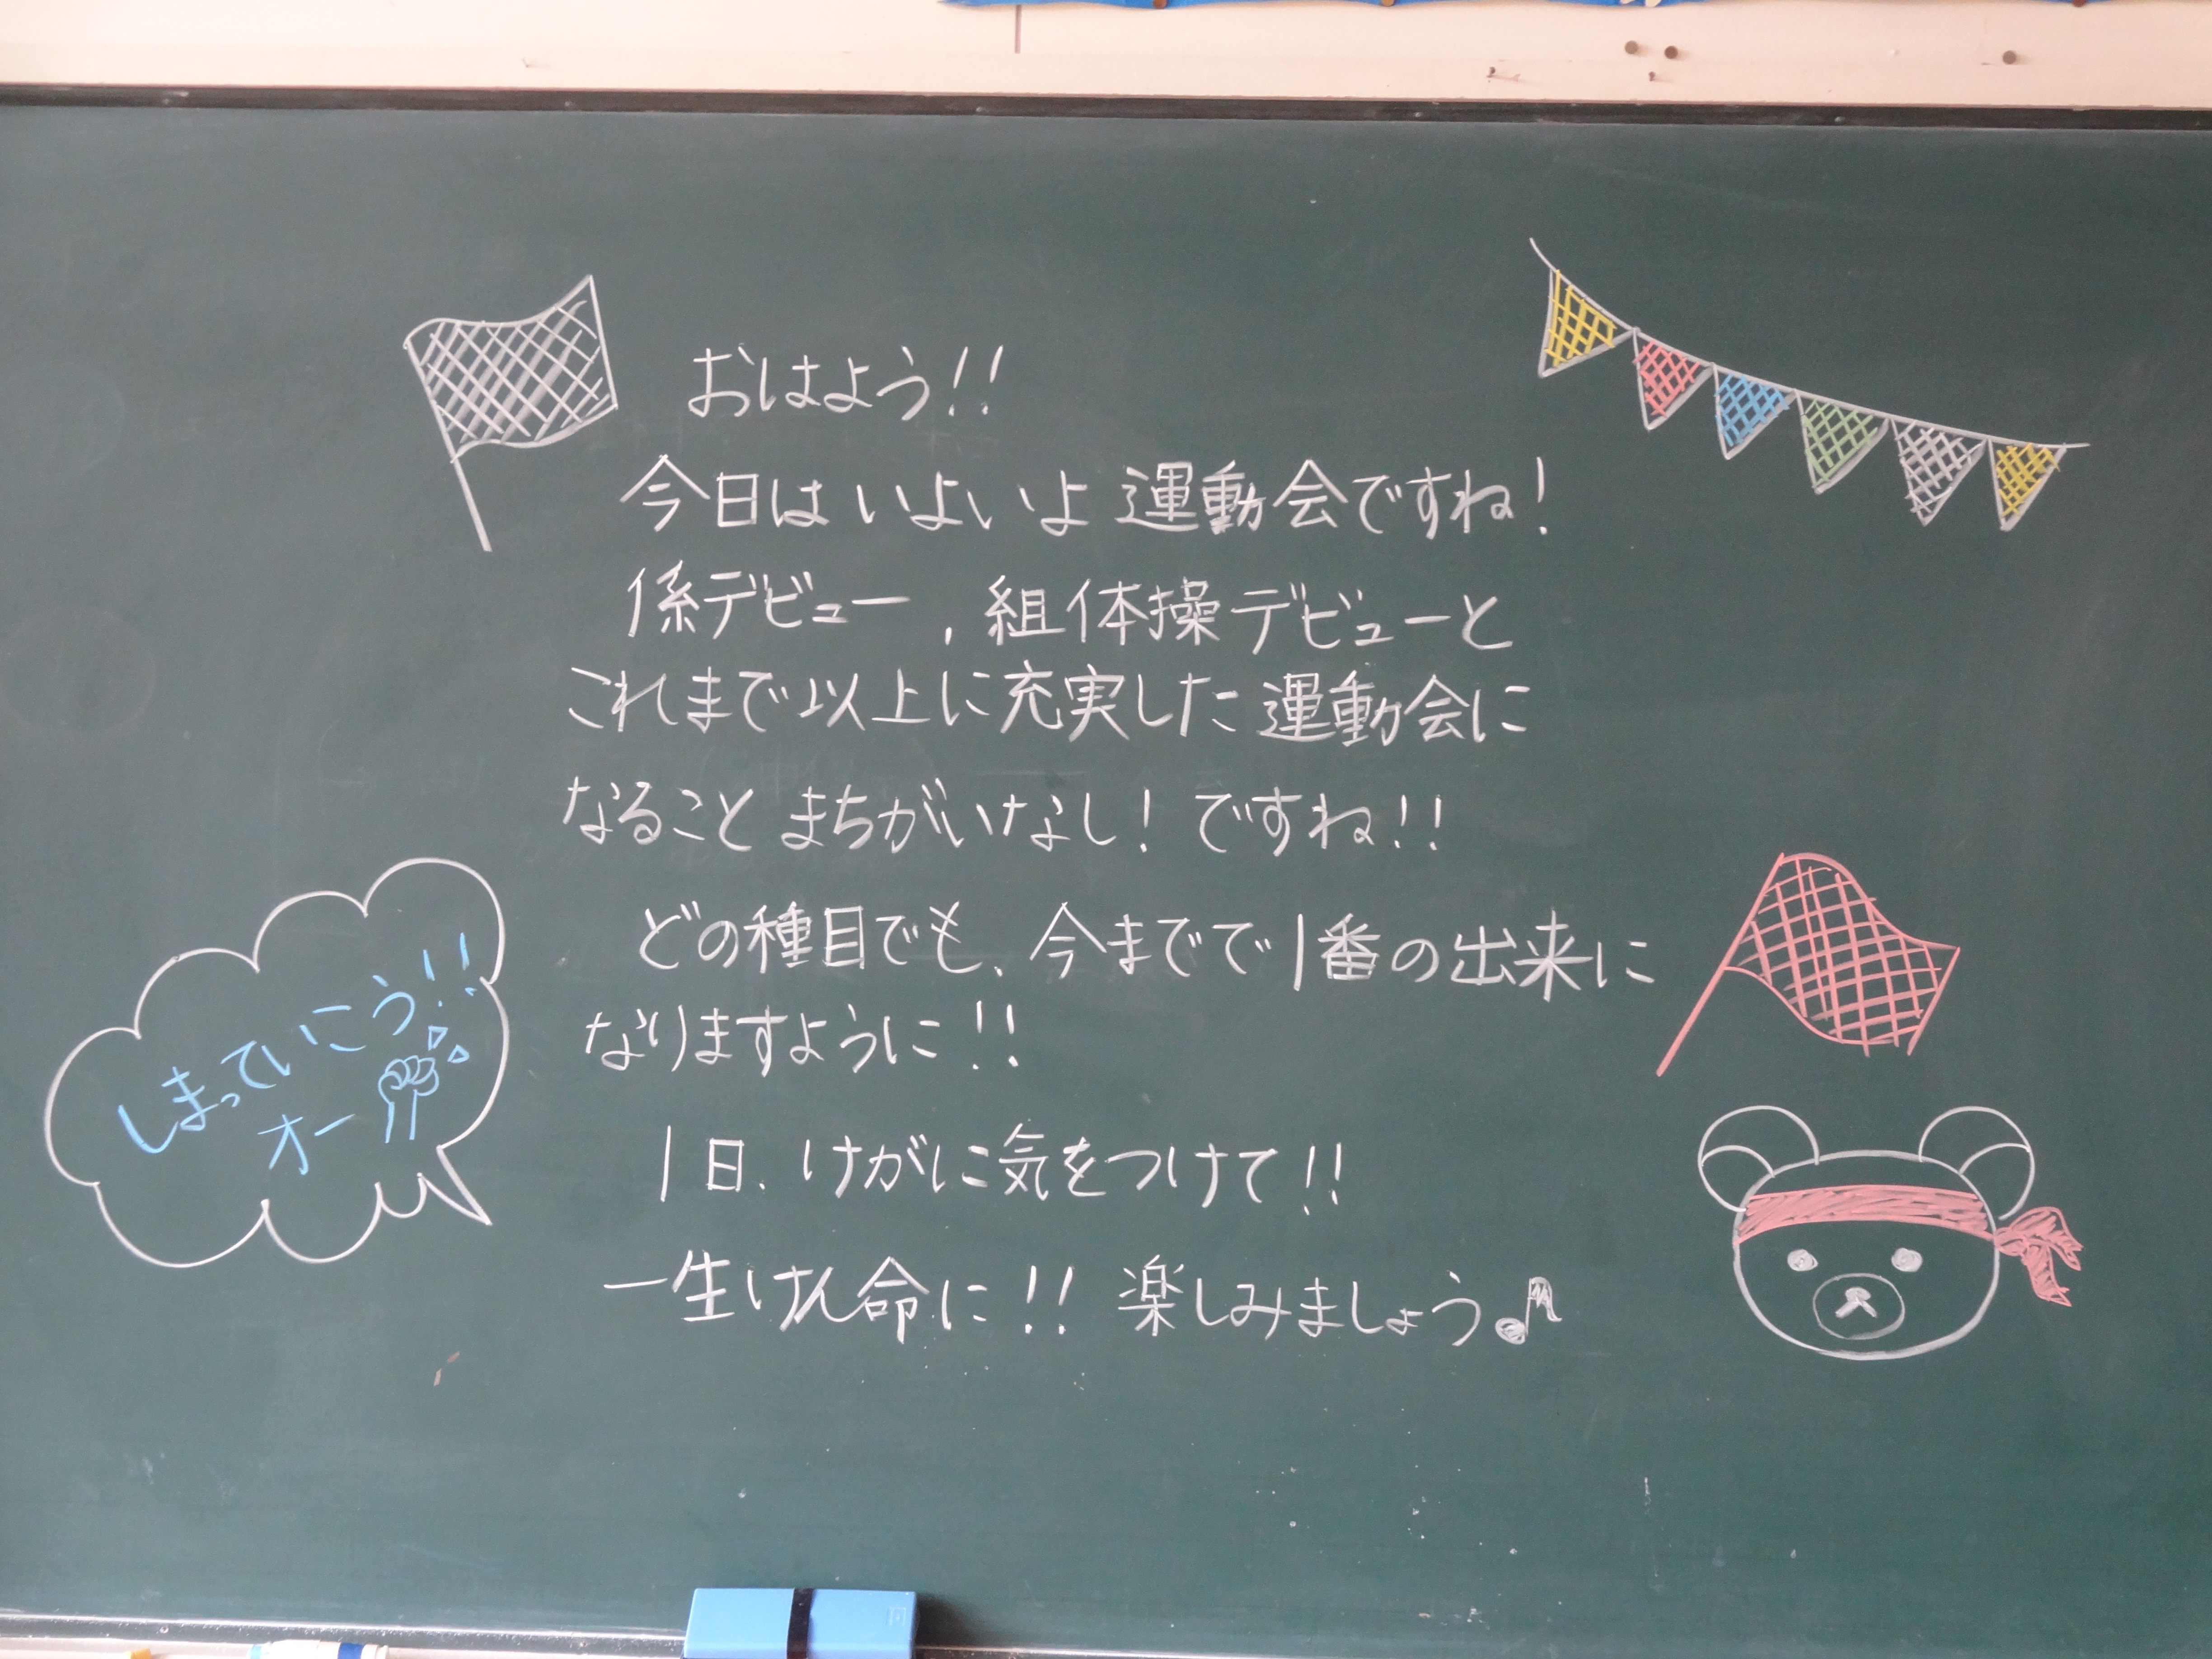 おはよう!!
今日はいよいよ運動会ですね!
係デビュー、組体操デビューと
これまで以上に充実した運動会に
なること まちがいなし! ですね!!
どの種目でも、今までで1番の出来に
なりますように!!
1日、けがに気をつけて!!
一生けん命に!! 楽しみましょう♪
しまっていこう!!
オー